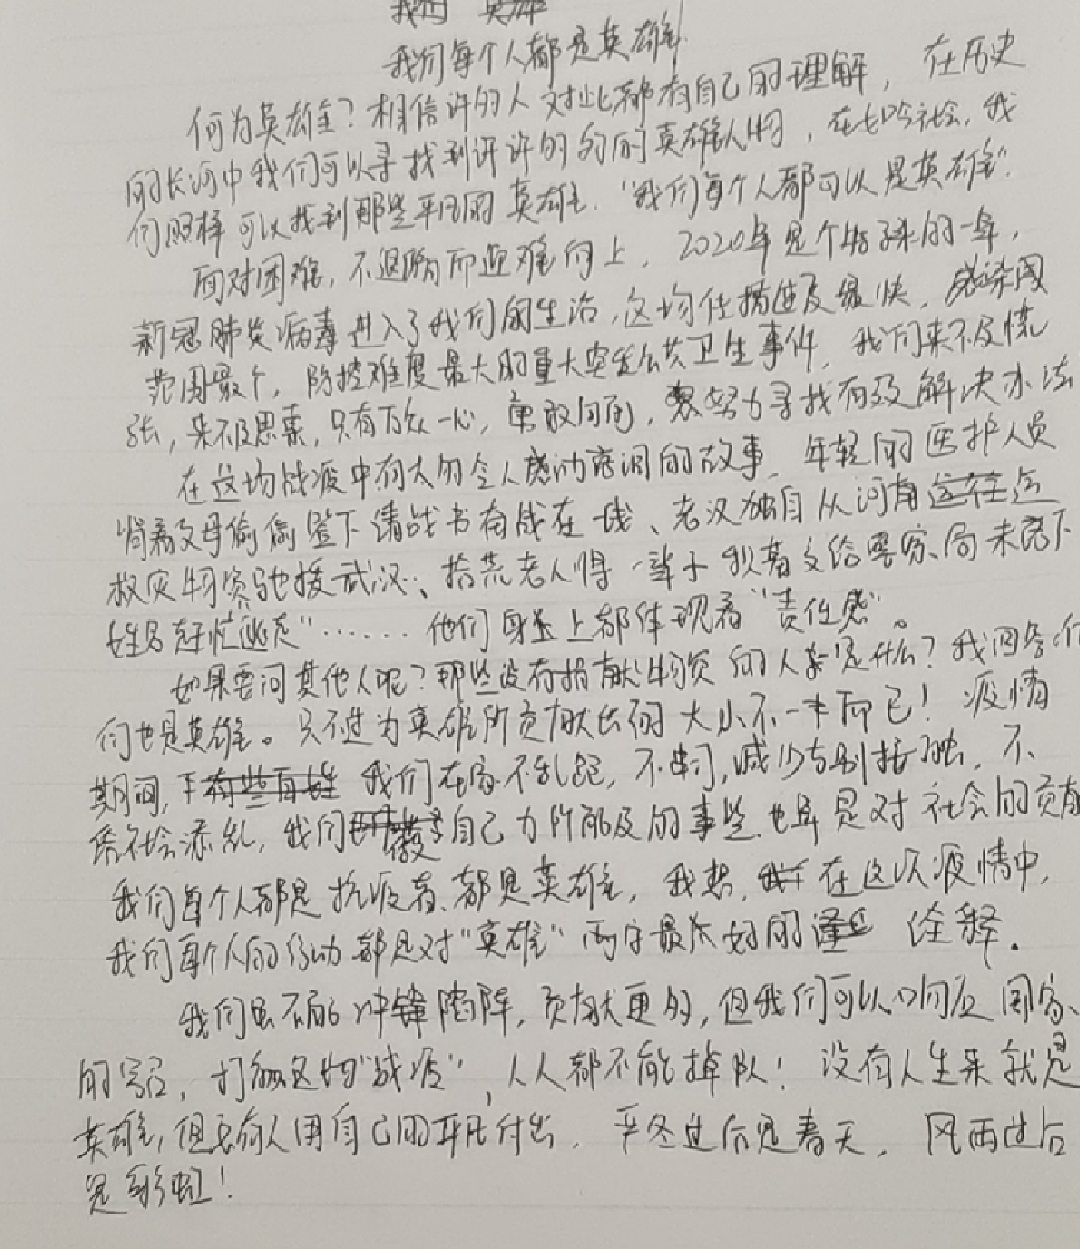 我们 英雄
我们每个人都是英雄
何为英雄？相信许多人对此都有自己的理解，在历史
的长河中我们可以寻找到许许多多的英雄人物，在社会，我
们照样可以找到那些平凡的英雄.“我们每个人都可以是英雄”.
面对困难，不退缩而迎难向上，2020年是个特殊的一年，
新冠肺炎病毒进入了我们的生活，这场传播速度最快，感染
范围最广，防控难度最大的重大突发公共卫生事件，我们来不及慌
张，来不及思索，只有万众一心，勇敢向前，努力寻找有效解决办法
在这场战疫中有太多令人感动落泪的故事，年轻的医护人员
背着父母偷偷签下请战书奋战在一线、老汉独自从河南运
救灾物资驰援武汉、拾荒老人将一
姓名赶忙逃走“……他们身上都体现着“责任感”。
如果要问其他人呢？那些没有捐献物资的人算是什么？我回答他
们也是英雄。只不过为英雄所贡献出的大小不一才而已！疫情
期间，我们在家不乱跑，不串门，减少与别接触，不
给社会添乱，我们做自己力所能及的事些也算是对社会的贡献
我们每个人都是抗疫者、都是英雄，我想，在这次疫情中，
我们每个人的行动都是对“英雄”两字最好的诠释.
我们虽不能冲锋陷阵，贡献更多，但我们可以响应国家、
的号召，打赢这场“战疫”，人人都不能掉队！没有人生来就是
英雄，但总有人用自己的平凡付出，严冬过后是春天，风雨过后
是彩虹！